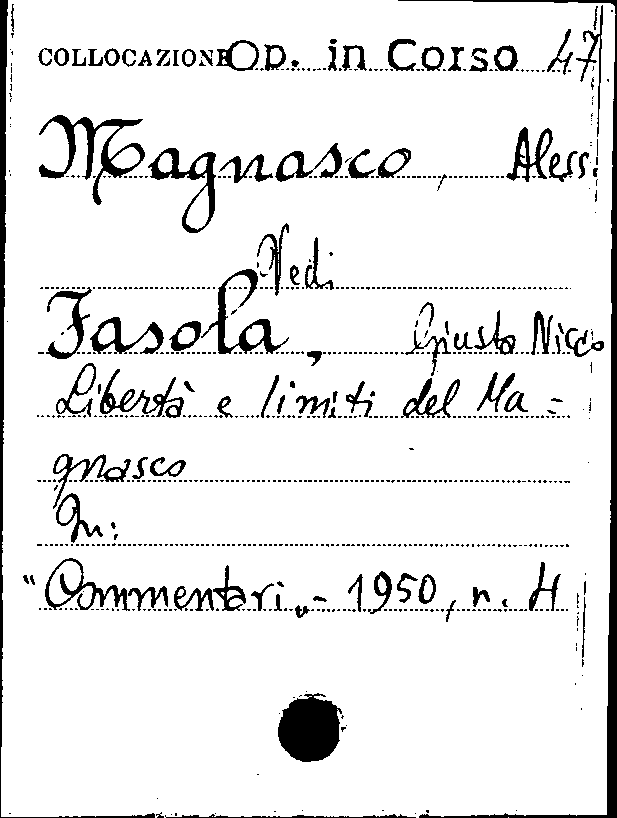 COLLOCAZIONE Op. in Corso 47
Magnasco, Aless.
Vedi
Fasola, Giusta Nicco
Libertà e limiti del Ma=
gnasco
In:
"Commentari„- 1950, n. 4